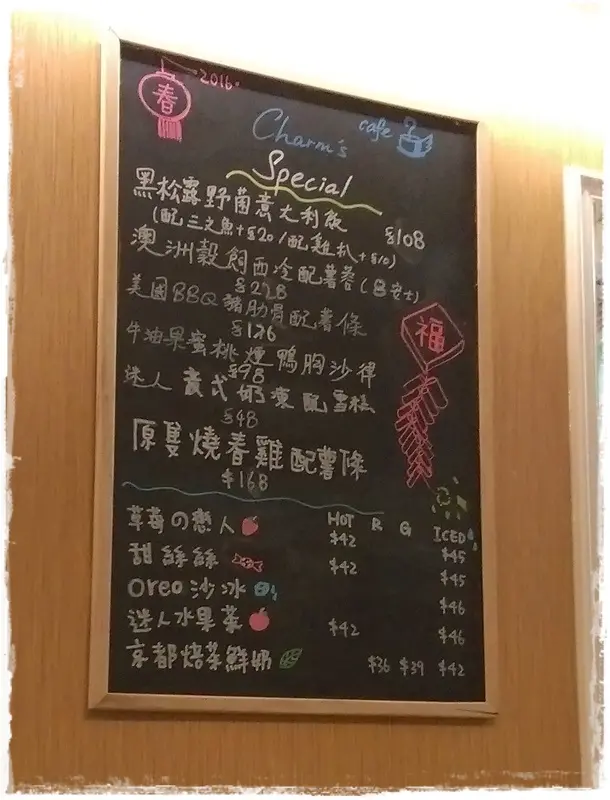 春 2016.
Charm's cafe
Special
黑松露野菌意大利飯 $108
(配三文魚+$20/配雞扒+$10)
澳洲穀飼西冷配薯蓉(8安士)
$228
美國BBQ豬肋骨配薯條
$126
牛油果蜜桃煙鴨胸沙律
$98
迷人意式奶凍配雪糕
$48
福
原隻燒春雞配薯條
$168
HOT R G ICED
草莓の戀人 $42 $45
甜絲絲 $42 $45
Oreo沙冰 $46
迷人水果茶 $42 $46
京都焙茶鮮奶 $36 $39 $42